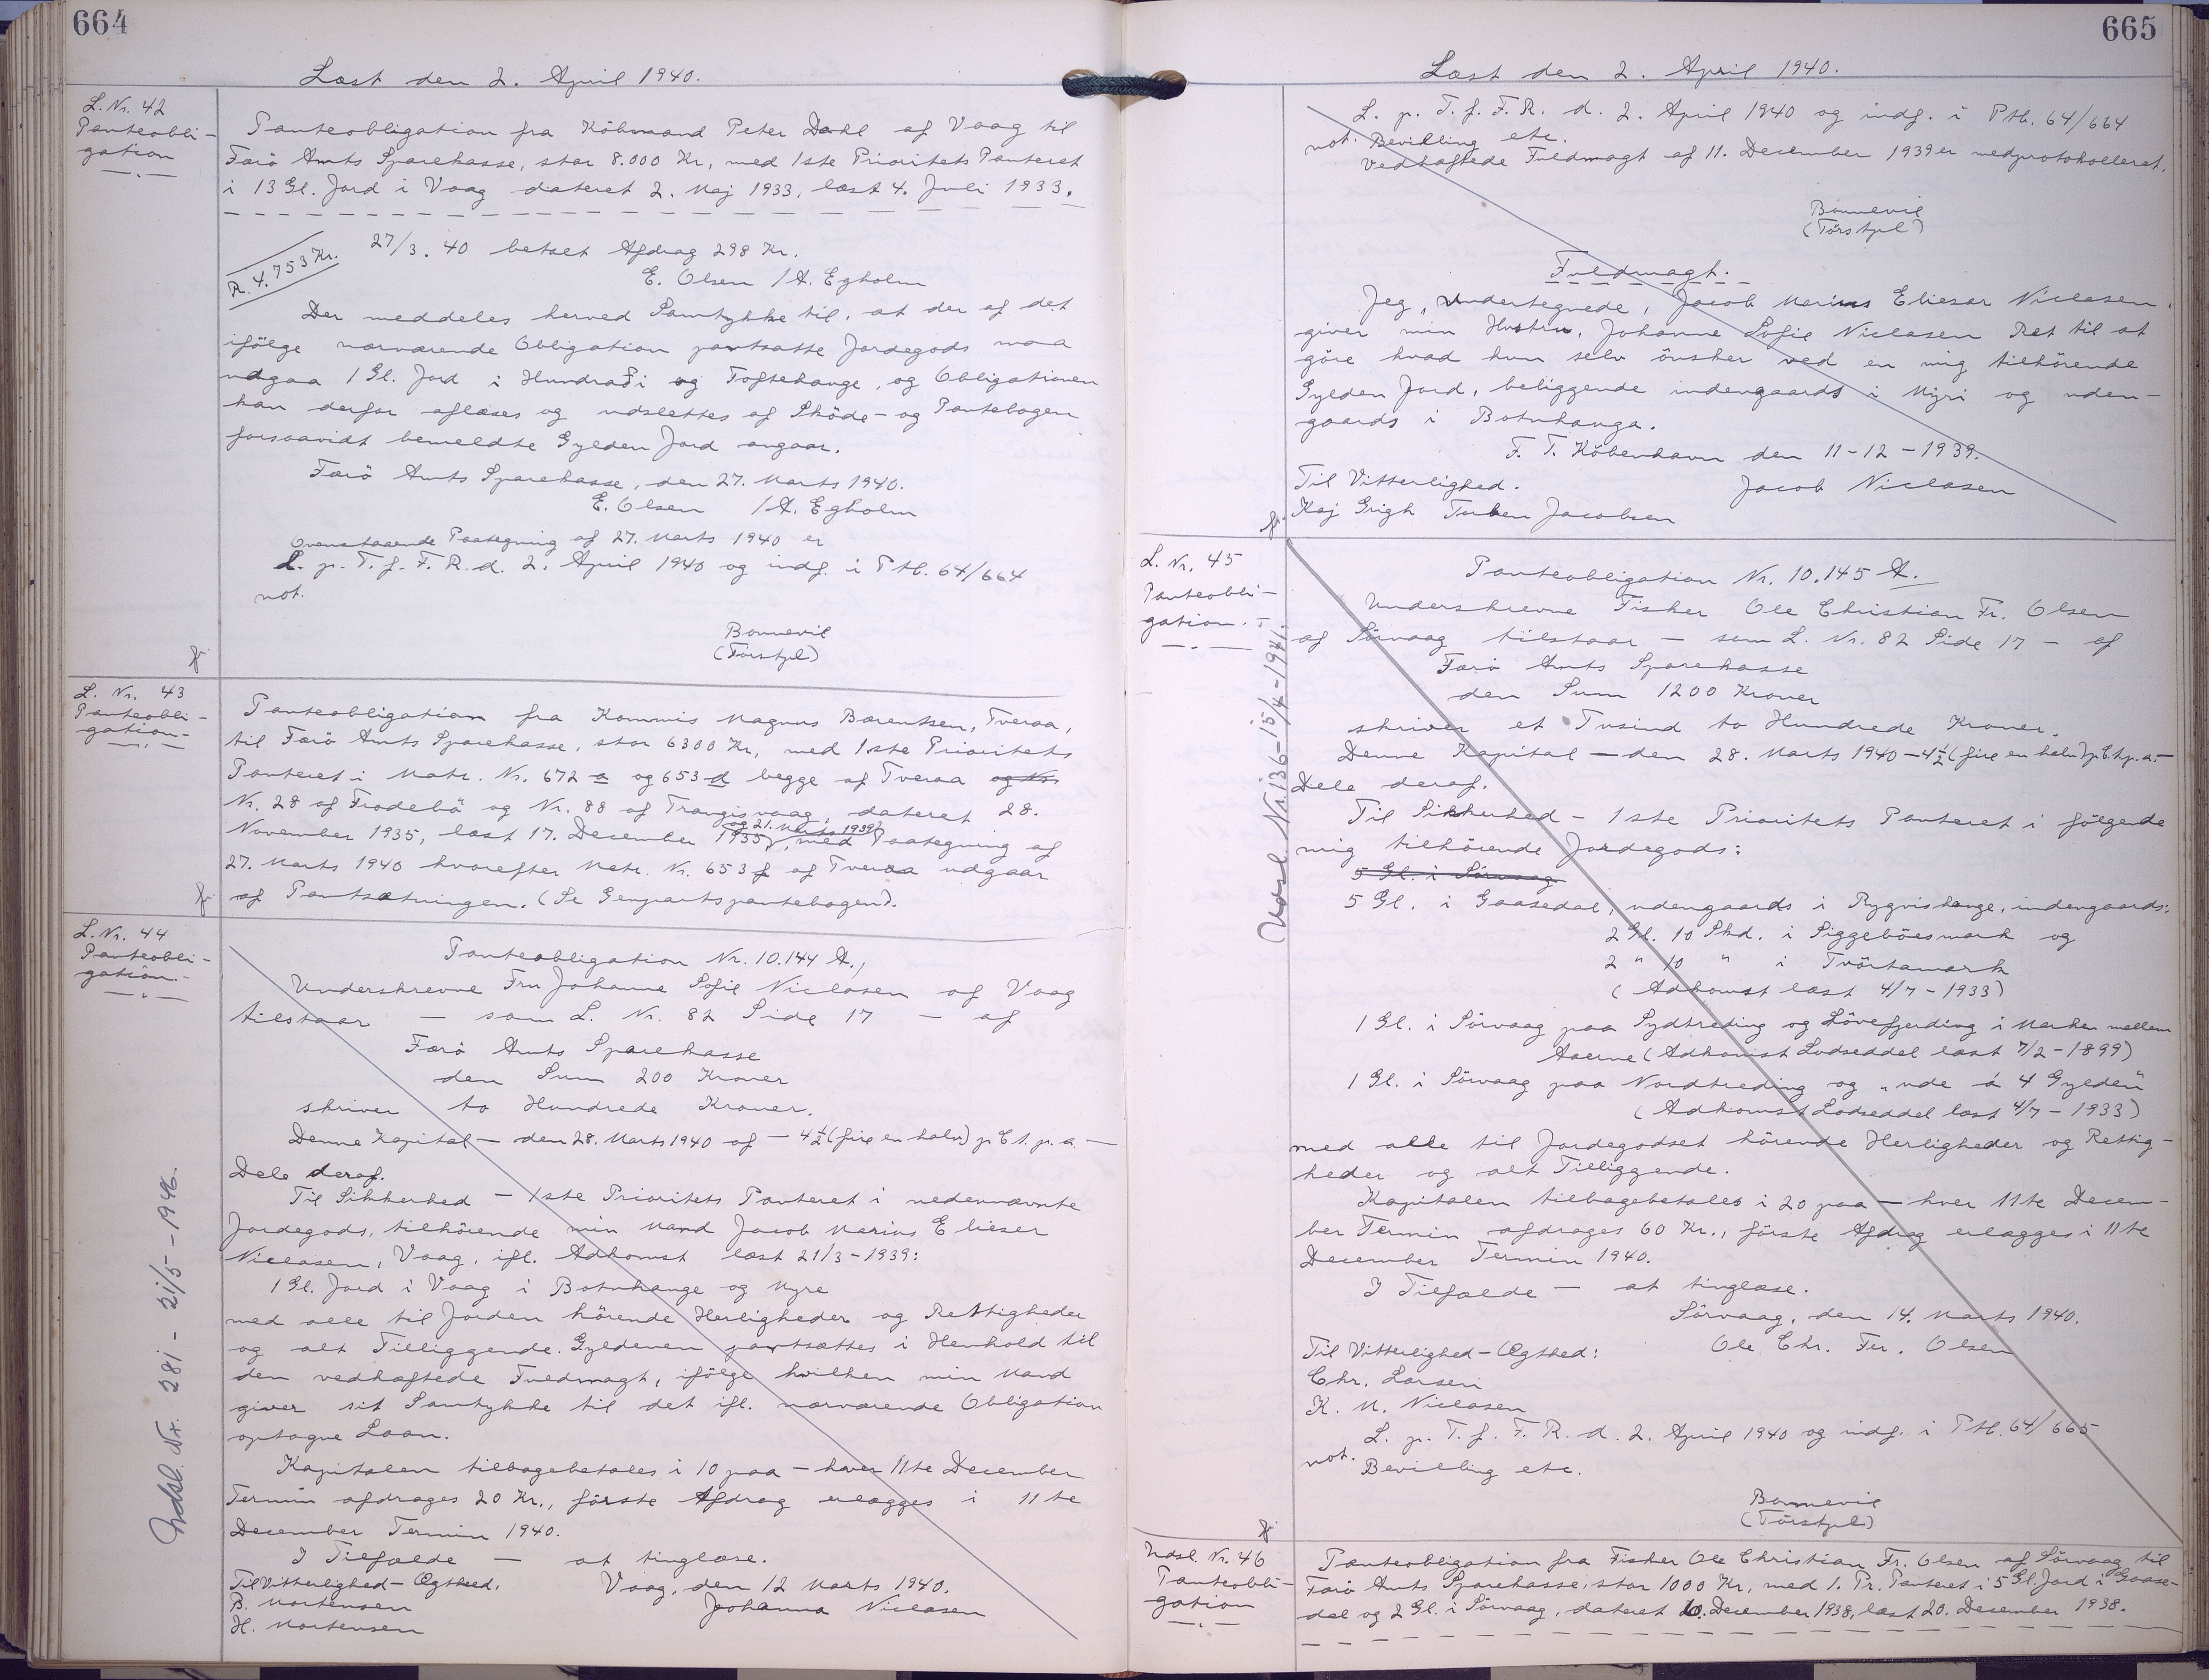 664
Læst den 2. April 1940.
L. Nr. 42
Panteobli-
gation
Panteobligation fra Köbmand Peter Dahl af Vaag til
Færö Amts Sparekasse, stor 8.000 Kr, med 1ste Prioritets Panteret
i 13 Gl. Jord i Vaag dateret 2. Maj 1933, læst 4. Juli 1933.
R. 4.753 Kr.
27/3. 40 betalt Afdrag 298 Kr.
E. Olsen /A. Egholm
Der meddeles herved Samtykke til, at der af det
ifölge nærværende Obligation pantsatte Jordegods maa
udgaa 1 Gl. Jord i Hundraði og Toftehauge, og Obligationen
kan derfor aflæses og udslettes af Sköde- og Pantebogen
forsaavidt bemeldte Gylden Jord angaar.
Færö Amts Sparekasse, den 27. Marts 1940.
E. Olsen /A. Egholm
Ovenstaaende Paategning af 27. Marts 1940 er
L. p. T. f. F. R. d. 2. April 1940 og indf. i Ptb. 64/664
not.
Bonnevie
(Torstpl)
L. Nr. 43
Panteobli-
gation-
Panteobligation fra Kommis Magnus Bærentsen, Tveraa,
til Færö Amts Sparekasse, stor 6300 Kr, med 1ste Prioritets
Panteret i Matr. Nr. 672 a og 653 d begge af Tveraa og Nr
Nr. 28 af Frodebö og Nr. 88 af Trangisvaag, dateret 28.
og 21. Marts 1939
November 1935, læst 17. December 1935, med Paategning af
27. Marts 1940 hvorefter Matr. Nr. 653 f af Tveraa udgaar
af Pantsætningen. (Se Genpartspantebogen).
L. Nr. 44
Panteobli-
gation.-
Panteobligation Nr. 10.144 A.,
Underskrevne Fru Johanne Sofie Niclasen af Vaag
tilstaar - som L. Nr. 82 Side 17 - af
Færö Amts Sparekasse
den Sum 200 Kroner
skriver to Hundrede Kroner.
Denne Kapital - den 28. Marts 1940 af - 4½ (fire en halv) p Ct. p. a. -
Dele deraf.
Til Sikkerhed - 1ste Prioritets Panteret i nedennævnte
Jordegods, tilhörende min Mand Jacob Marius Elieser
Niclasen, Vaag, ifl. Adkomst læst 21/3-1939:
1 Gl. Jord i Vaag i Botnhauge og Myre
med alle til Jorden hörende Herligheder og Rettigheder
og alt Tilliggende. Gyldenen pantsættes i Henhold til
den vedhæftede Fuldmagt, ifölge hvilken min Mand
giver sit Samtykke til det ifl. nærværende Obligation
optagne Laan.
Kapitalen tilbagebetales i 10 paa - hver 11te December
Termin afdrages 20 Kr., förste Afdrag erlægges i 11te
December Termin 1940.
I Tilfælde - at tinglæse.
Til Vitterlighed - Ægthed.
Vaag, den 12 Marts 1940.
B. Mortensen
Johanna Niclasen
H. Mortensen
Udsl. Nr. 281 - 21/5 - 1946.
665
Læst den 2. April 1940.
L. p. T. f. F. R. d. 2. April 1940 og indf. i Ptb. 64/664
not. Bevilling etc.
Vedhæftede Fuldmagt af 11. December 1939 er medprotokolleret.
Bonnevie
(Torstpl)
Fuldmagt.
Jeg, undertegnede, Jacob Marius Eliesar Niclasen,
giver min Hustru, Johanne Sofie Niclasen Ret til at
göre hvad hun selv önsker ved en mig tilhörende
Gylden Jord, beliggende indengaards i Mýri og uden-
gaards i Botnhauga.
F. T. Köbenhavn den 11-12-1939.
Til Vitterlighed.
Jacob Niclasen
Kaj Grigh Jacobsen
L. Nr. 45
Panteobli-
gation.-
Udsl. Nr. 136-15/4-1941.
Panteobligation Nr. 10.145 A.
Underskrevne Fisker Ole Christian Fr. Olsen
af Sörvaag tilstaar - som L. Nr. 82 Side 17 - af
Færö Amts Sparekasse
den Sum 1200 Kroner
skriver et Tusind to Hundrede Kroner.
Denne Kapital - den 28. Marts 1940 - 4½ (fire en halv) p Ct p. a. -
Dele deraf.
Til Sikkerhed - 1ste Prioritets Panteret i fölgende
mig tilhörende Jordegods:
5 Gl. i Sörvaag
5 Gl. i Gaasedal, udengaards i Rygvishauge, indengaards:
2 Gl. 10 Skd. i Siggeböesmark og
2 " 10 " i Tvörtamark
(Adkomst læst 4/7-1933)
1 Gl. i Sörvaag paa Sydtreding og Lövefjerding i Marken mellem
Aaerne (Adkomst Lodseddel læst 7/2-1899)
1 Gl. i Sörvaag paa Nordtreding og "ude á 4 Gylden"
(Adkomst Lodseddel læst 4/7-1933)
med alle til Jordegodset hörende Herligheder og Rettig-
heder og alt Tilliggende.
Kapitalen tilbagebetales i 20 paa - hver 11te Decem-
ber Termin afdrages 60 Kr., förste Afdrag erlægges i 11te
December Termin 1940.
I Tilfælde - at tinglæse.
Sörvaag, den 14. Marts 1940.
Til Vitterlighed - Ægthed:
Ole Chr. Fr. Olsen
Chr. Larsen
K. M. Niclasen
L. p. T. f. F. R. d. 2. April 1940 og indf. i Ptb. 64/665
not. Bevilling etc.
Bonnevie
(Torstpl)
Udsl. Nr. 46
Panteobli-
gation
Panteobligation fra Fisker Ole Christian Fr. Olsen af Sörvaag til
Færö Amts Sparekasse, stor 1000 Kr, med 1. Pr. Panteret i 5 Gl. Jord i Gaase-
dal og 2 Gl. i Sörvaag, dateret 10. December 1938, læst 20. December 1938.